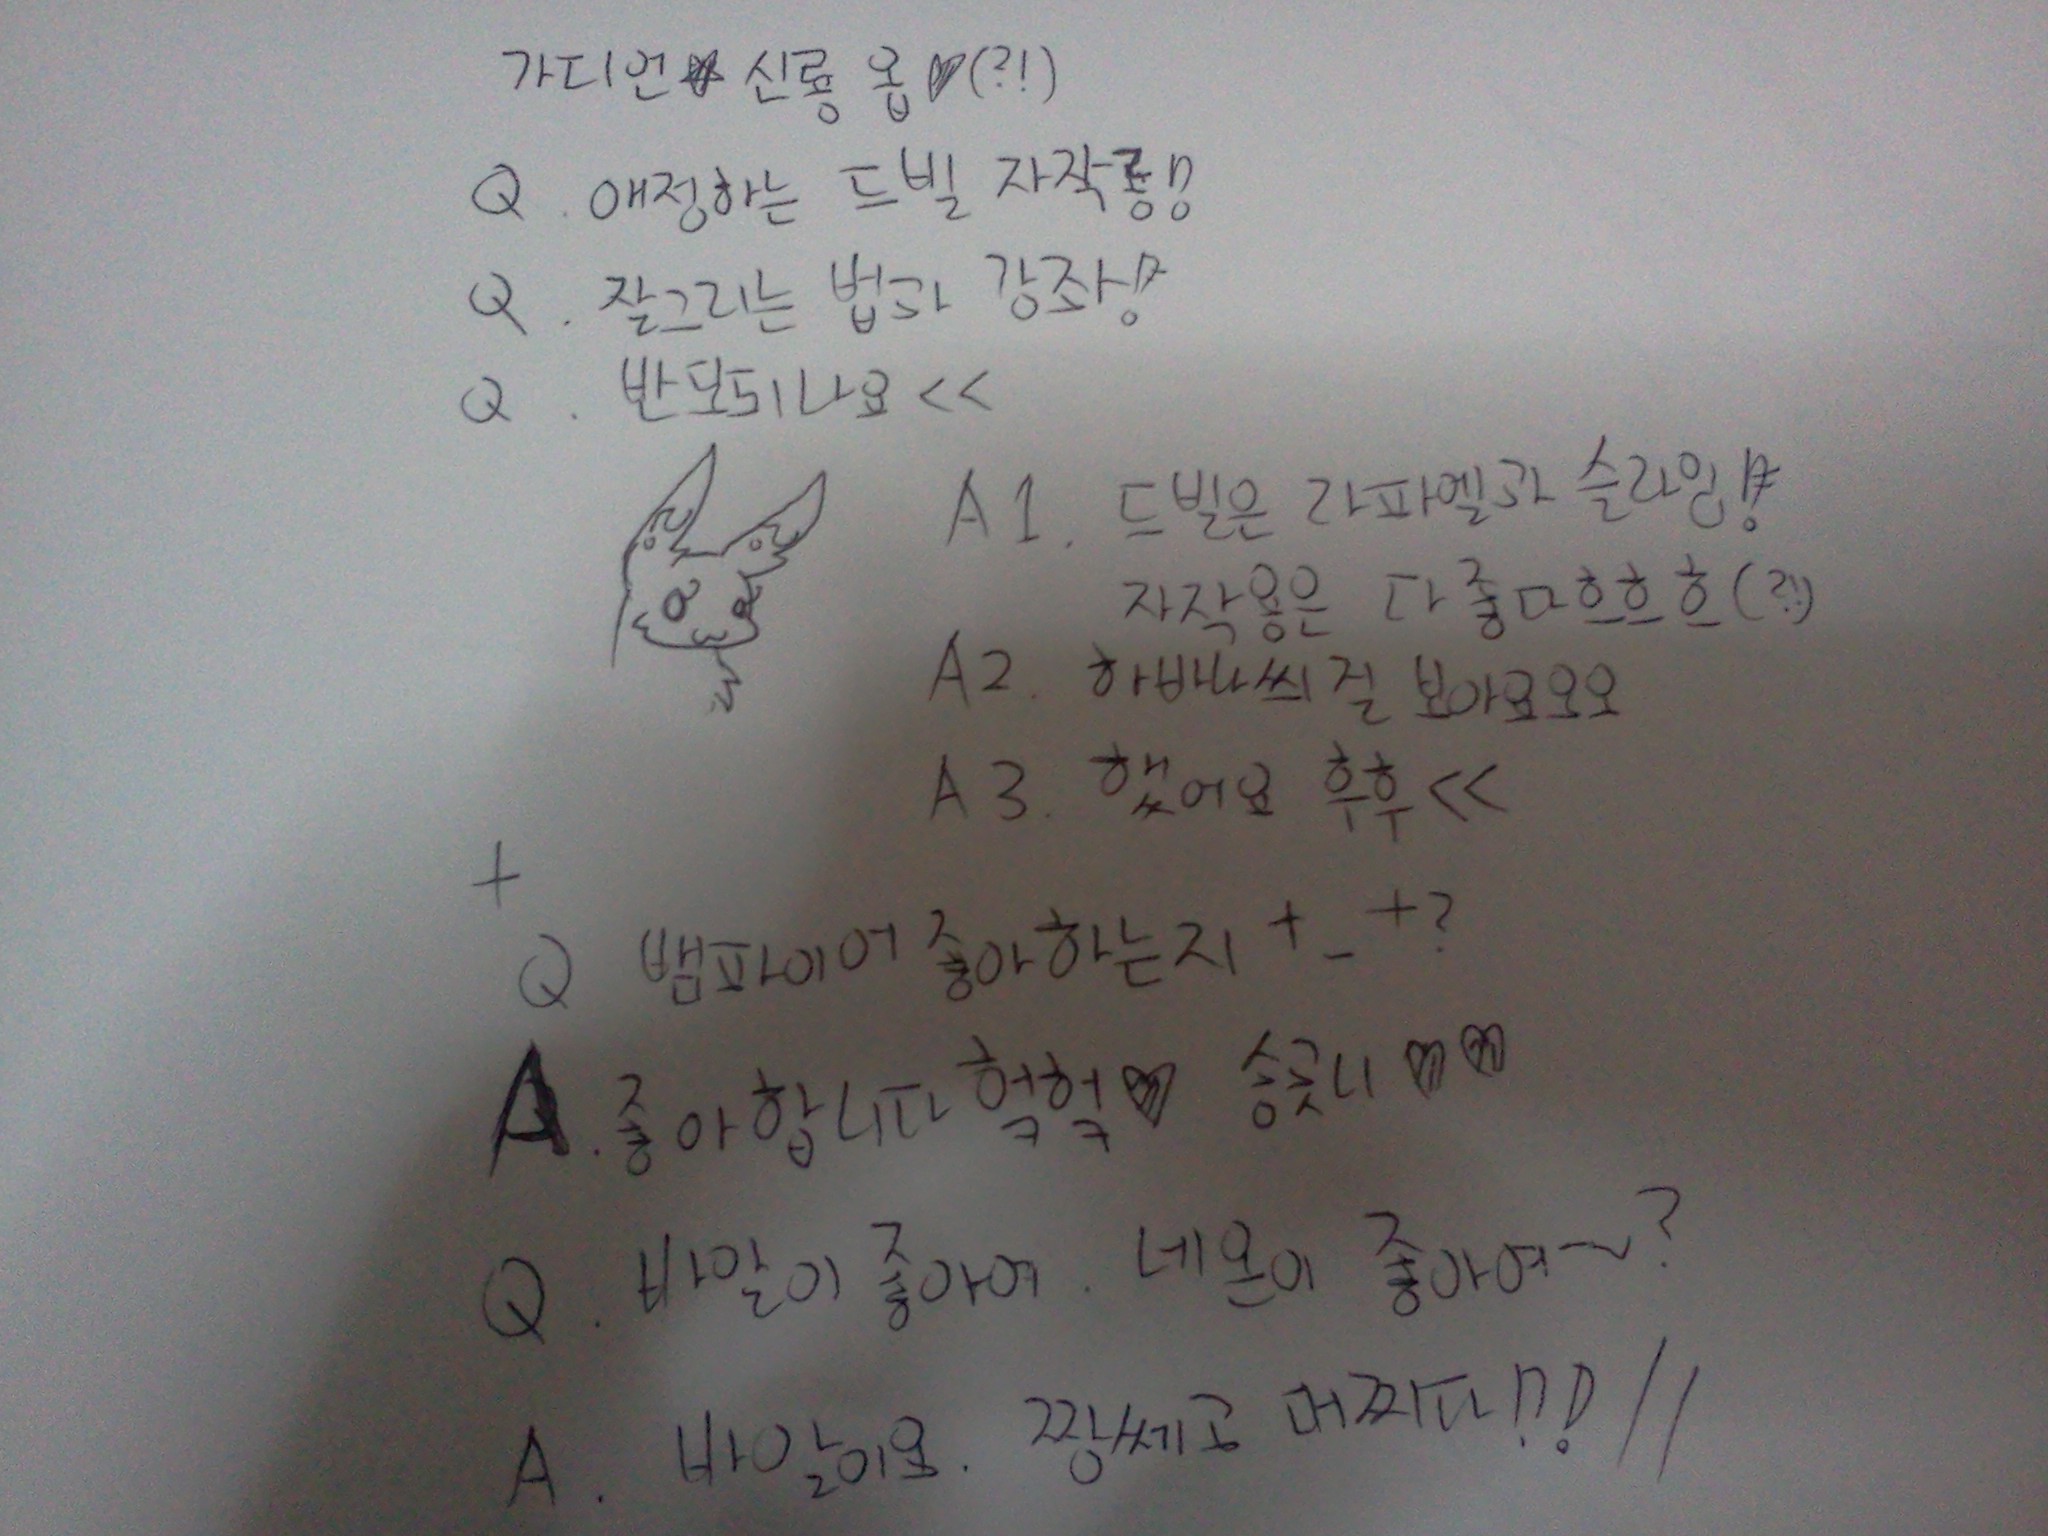 가디언★ 신룡 옵♥(?!)
Q. 애정하는 드빌 자작룡!!
Q. 잘그리는 법과 강좌!
Q. 반모되나요<<
A1. 드빌은 라파엘과 슬라임!
자작용은 다좋마흐흐흐(?!)
A2. 하바나씌걸 보아요오오
A3. 했어요 후후<<
+
Q 뱀파이어 좋아하는지 +_+?
A. 좋아합니다 헠헠♥ 숑긏니♥♥
Q. 바알이 좋아여. 네온이 좋아여~?
A. 바알이요. 짱쎄고 머찌다!!! //